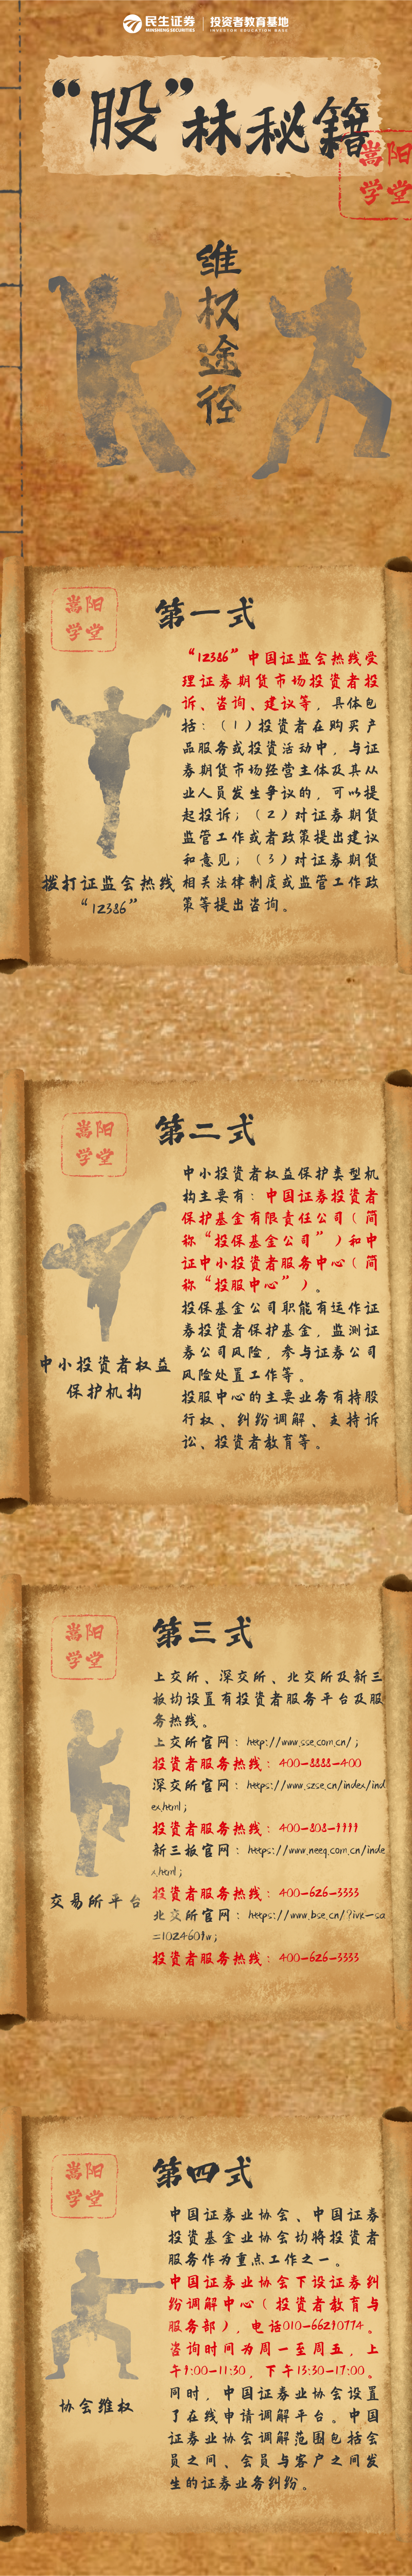 民生证券 投资者教育基地
MINSHENG SECURITIES INVESTOR EDUCATION BASE
“股”林秘籍
嵩阳
学堂
维权途径
嵩阳
学堂
第一式
“12386”中国证监会热线受
理证券期货市场投资者投
诉、咨询、建议等，具体包
括：（1）投资者在购买产
品服务或投资活动中，与证
券期货市场经营主体及其从
业人员发生争议的，可以提
起投诉；（2）对证券期货
监管工作或者政策提出建议
和意见；（3）对证券期货
相关法律制度或监管工作政
策等提出咨询。
拨打证监会热线
“12386”
嵩阳
学堂
第二式
中小投资者权益保护类型机
构主要有：中国证券投资者
保护基金有限责任公司（简
称“投保基金公司”）和中
证中小投资者服务中心（简
称“投服中心”）。
投保基金公司职能有运作证
券投资者保护基金，监测证
券公司风险，参与证券公司
风险处置工作等。
投服中心的主要业务有持股
行权、纠纷调解、支持诉
讼、投资者教育等。
中小投资者权益
保护机构
嵩阳
学堂
第三式
上交所、深交所、北交所及新三
板均设置有投资者服务平台及服
务热线。
上交所官网：http://www.sse.com.cn/；
投资者服务热线：400-8888-400
深交所官网：https://www.szse.cn/index/ind
ex.html；
投资者服务热线：400-808-9999
新三板官网：https://www.neeq.com.cn/inde
x.html；
投资者服务热线：400-626-3333
北交所官网：https://www.bse.cn/?ivk-sa
=1024609w；
投资者服务热线：400-626-3333
交易所平台
嵩阳
学堂
第四式
中国证券业协会、中国证券
投资基金业协会均将投资者
服务作为重点工作之一。
中国证券业协会下设证券纠
纷调解中心（投资者教育与
服务部），电话010-66290774。
咨询时间为周一至周五，上
午9:00-11:30，下午13:30-17:00。
同时，中国证券业协会设置
了在线申请调解平台。中国
证券业协会调解范围包括会
员之间、会员与客户之间发
生的证券业务纠纷。
协会维权